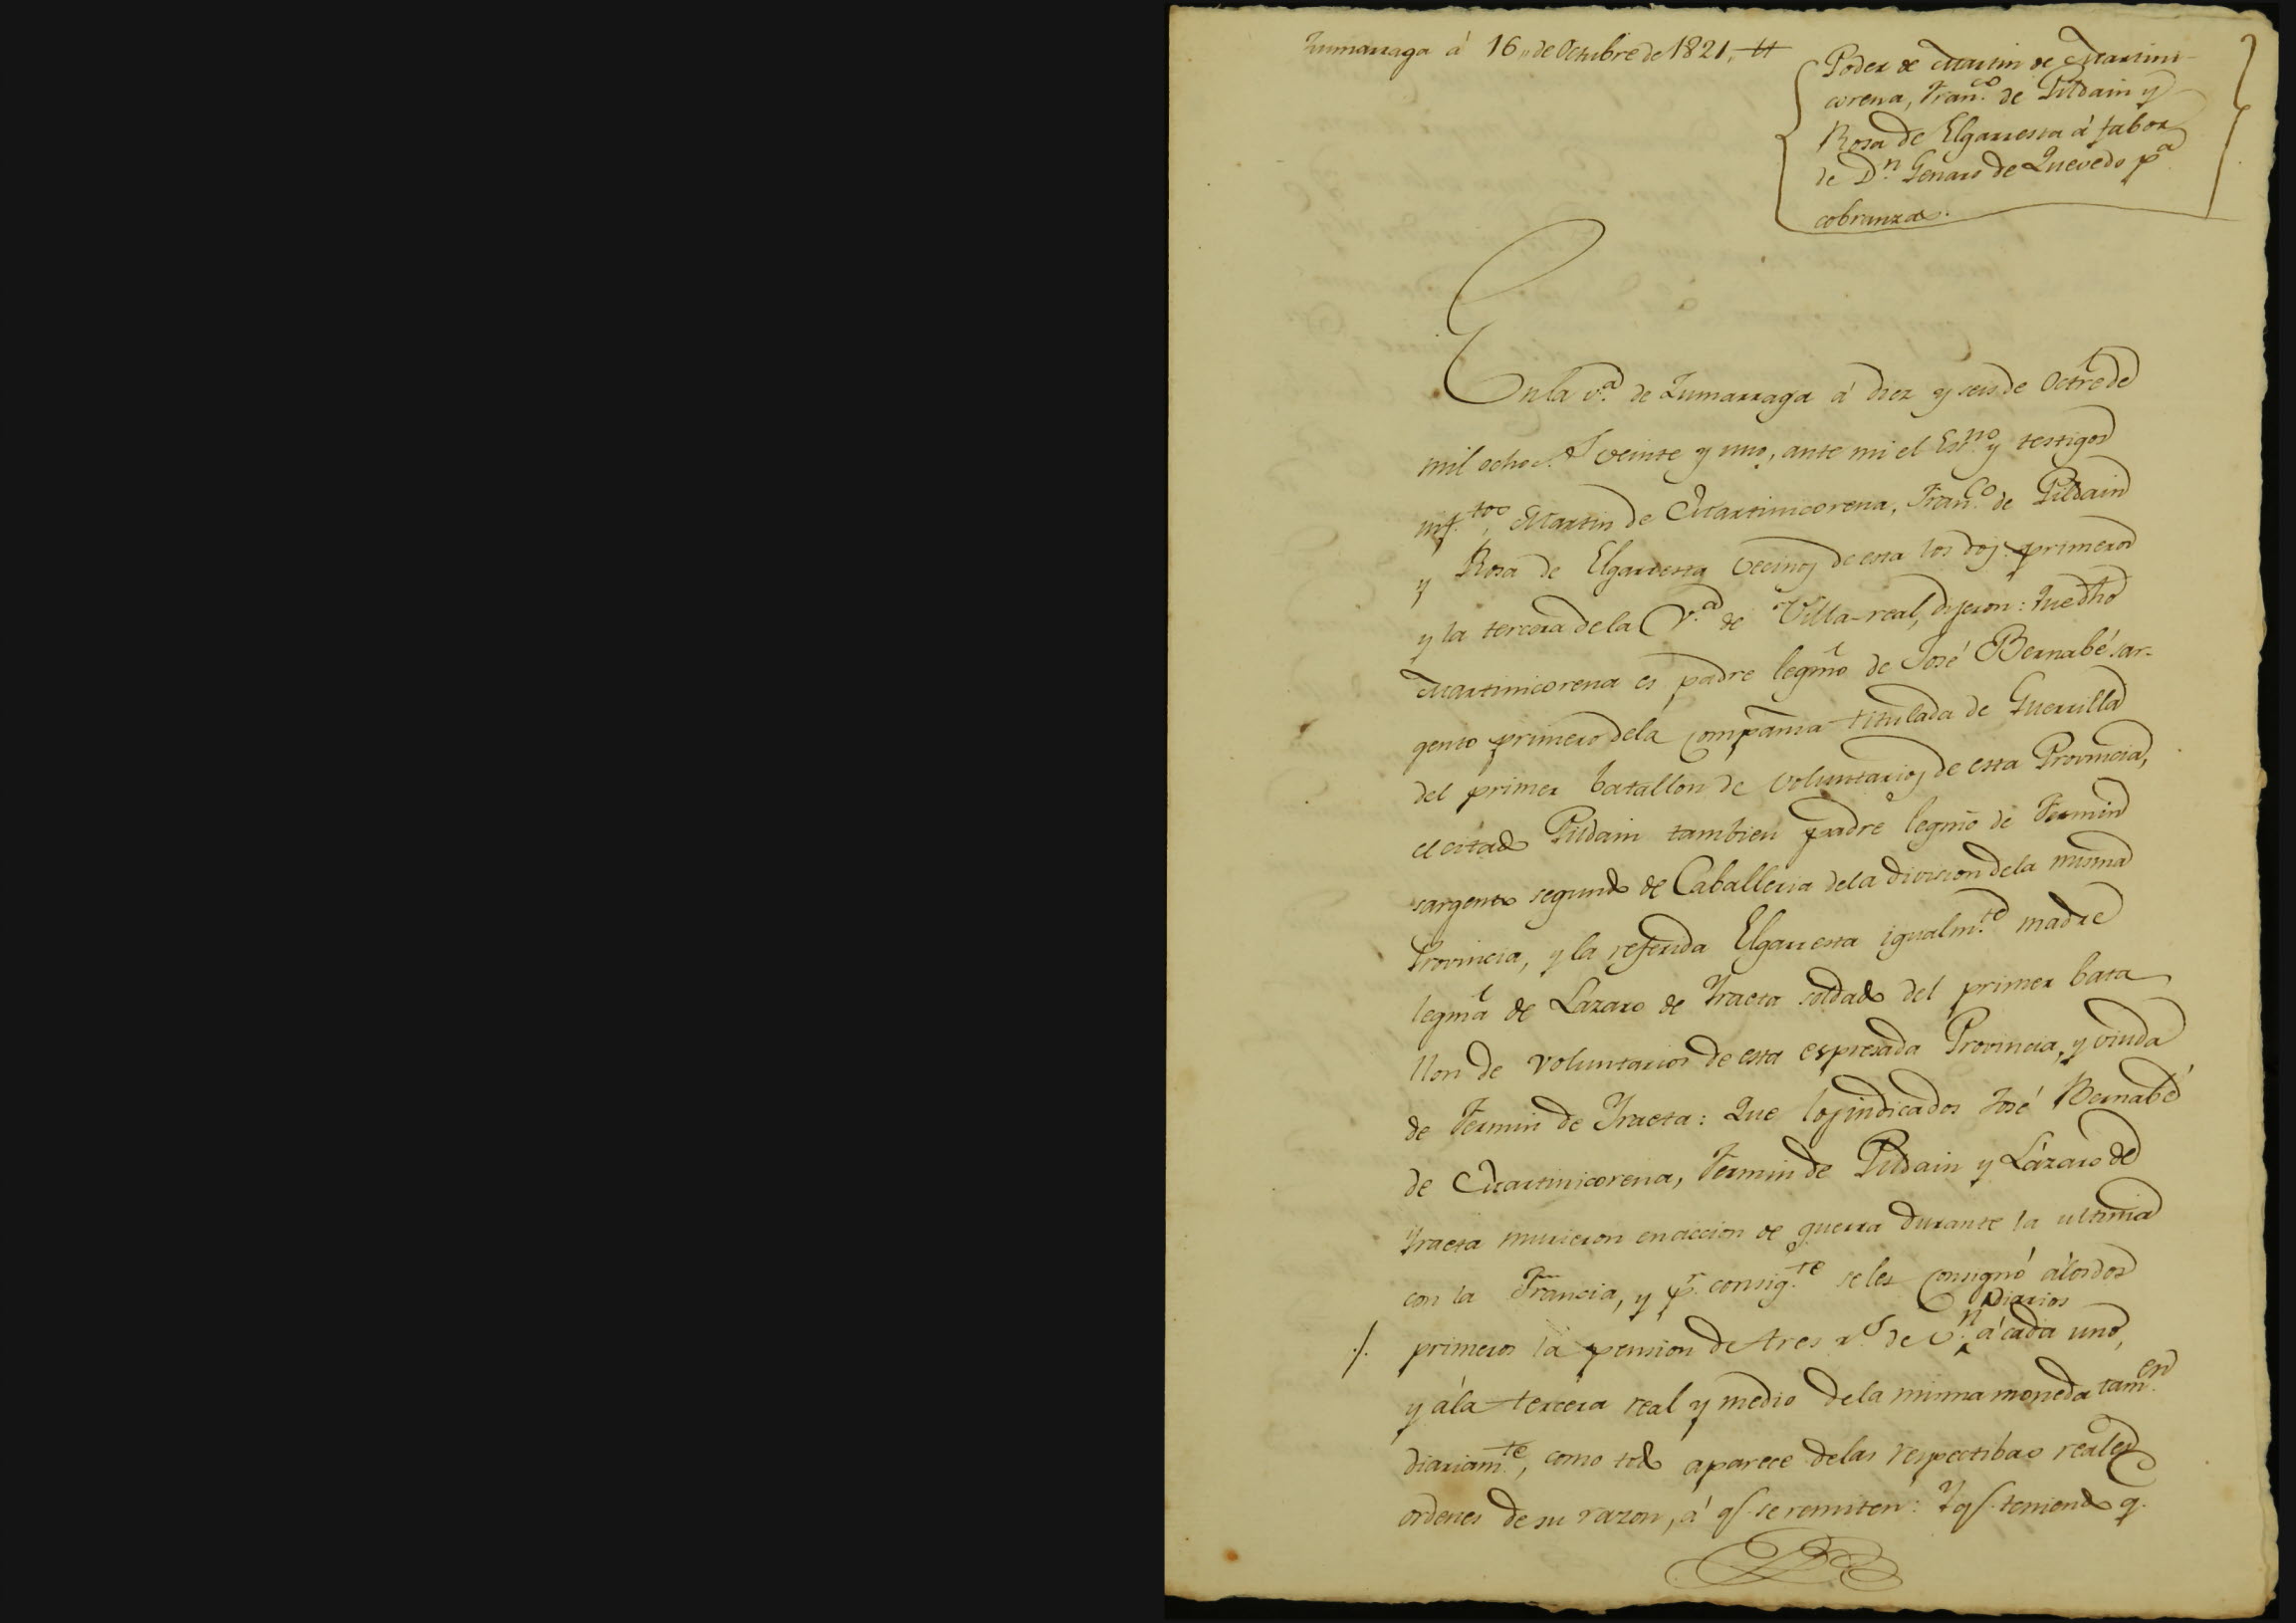 Zumarraga á 16,, de Octubre de 1821. tt
Poder de Martin de Martini-
corena, Fran.co de Pildain y
Rosa de Elgarresta á fabor
de D.n Genaro de Quevedo p.a
cobranza.
En la v.a de Zumarraga á diez y seis de Octre de
mil ocho c.s veinte y uno, ante mi el Esc.no y testigos
inf.tos, Martin de Martinicorena, Fran.co de Pildain
y Rosa de Elgarresta vecinos de esta los dos primeros
y la tercera de la V.a de Villa-real, dijeron: Que dho
Martinicorena es padre legmo de José Bernabé sar-
gento primero de la Compañia titulada de Guerrilla
del primer batallon de voluntarios de esta Provincia,
el citado Pildain tambien padre legmo de Fermin
sargento segundo de Caballeria de la division de la misma
Provincia, y la referida Elgarresta igualm.te madre
legma de Lazaro de Yraeta soldado del primer bata
llon de voluntarios de esta espresada Provincia, y viuda
de Fermin de Yraeta: Que los indicados José Bernabé
de Martinicorena, Fermin de Pildain y Lázaro de
Yraeta murieron en accion de guerra durante la ultima
con la Francia, y p.r consig.te se les consignó á los dos
diarios
./. primeros la pension de tres r.s de v.n á cada uno,
y á la tercera real y medio de la misma moneda tam.en
diariam.te, como todo aparece de las respectibas reales
ordenes de su razon, á q.s se remiten: Y q.s teniendo q.